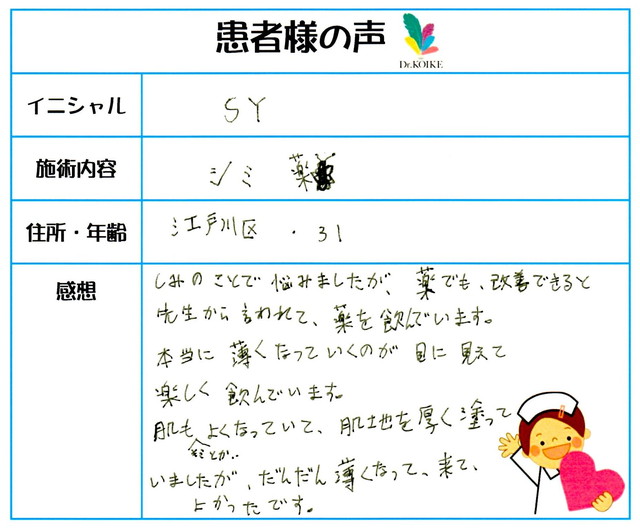 患者様の声
Dr.KOIKE
イニシャル
SY
施術内容
シミ 薬
住所・年齢
江戸川区 ・31
感想
しみのことで悩みましたが、薬でも、改善できると
先生から言われて、薬を飲んでいます。
本当に薄くなっていくのが目に見えて
楽しく飲んでいます。
肌もよくなっていて、肌地を厚く塗って
いましたが、だんだん薄くなって、来て、
よかったです。